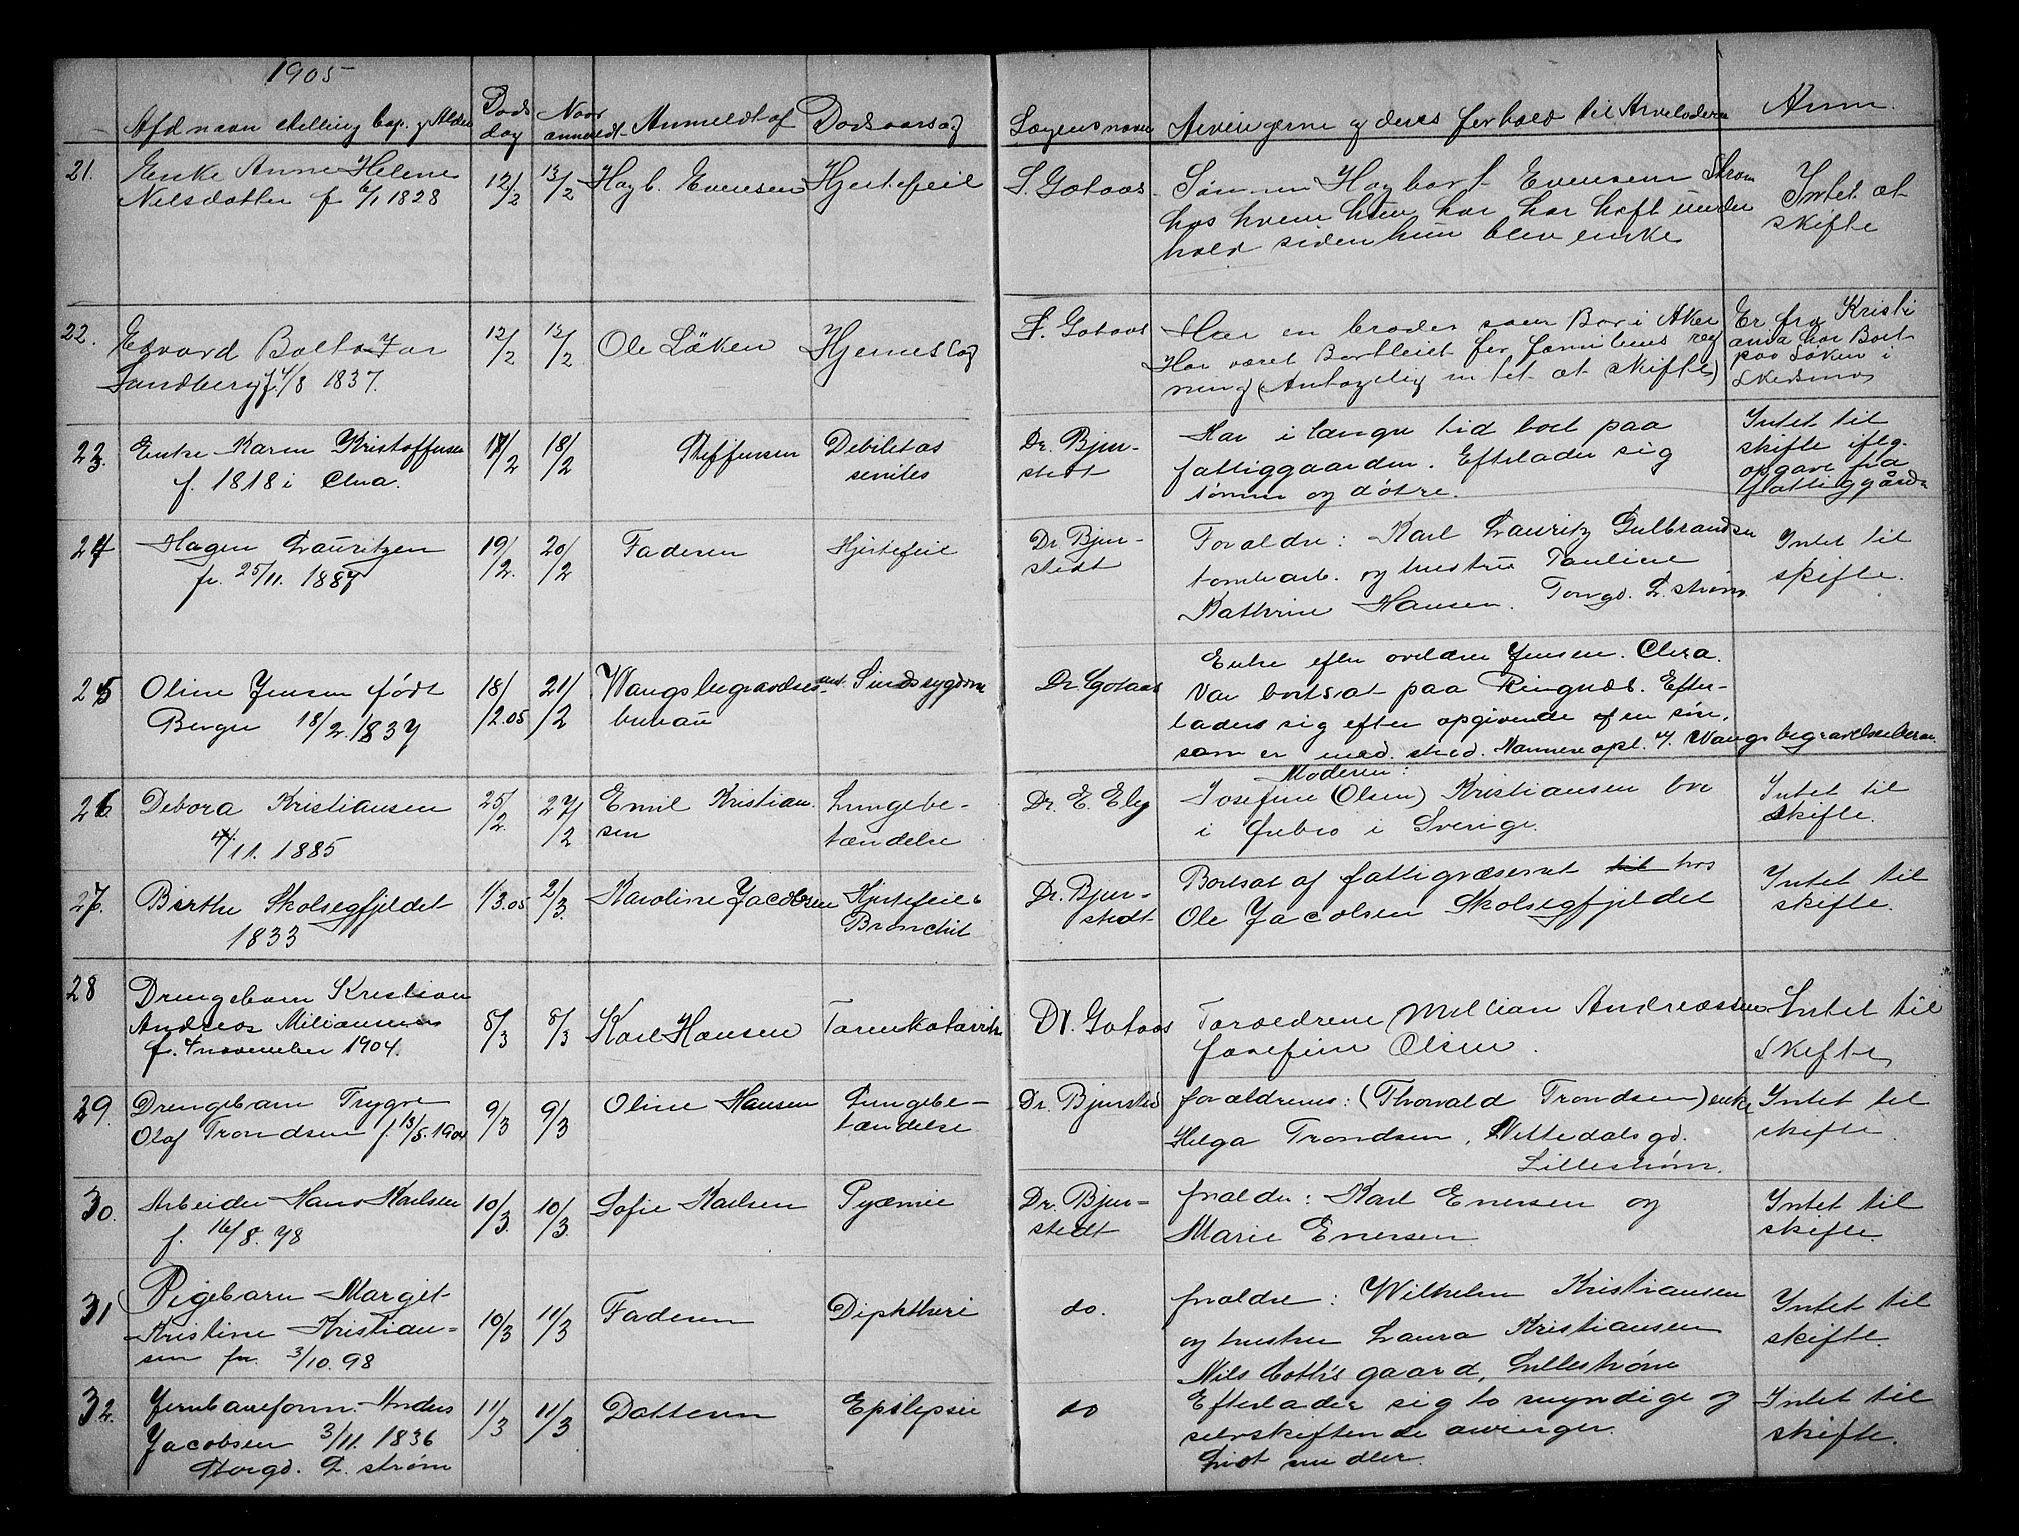 1905
Afd navn stilling bop. og Alder
Døds
dag
Naar
anmeldt
Anmeldt af
Dødsaarsag
Lægens navn
Arvingerne og deres forhold til Arveladeren
Anm.
21.
Enke Anne Helene
Nilsdatter f 6/1 1828
12/2
13/2
Hagb. Evensen
Hjertefeil
S. Gotaas
Sønnen Hagbart Evensen Strøm
hos hvem hun har har haft under
hold siden hun blev enke
Intet at
skifte
22.
Edvard Bolto
Sandberg f. 4/8 1837.
12/2
12/2
Ole Løken
Hjerneslag
S. Gotaas
Har en broder som Bor i Aker
Har været Bortleiet for familiens reg
ning (Antagelig intet at skifte)
Er fra Kristi
ania har Bort
paa Løken i
Skedsmo
23.
Enke Karen Kristoffersen
f. 1818 i Elva.
17/2
18/2
Steffensen
Debilitas
senites
Dr. Bjer-
stedt
Har i længre tid boet paa
fattiggaarden. Efterlader sig
sønner og døtre.
Intet til
skifte iflg.
opgave fra
fattiggården
24
Hagen Lauritzen
fr. 25/11. 1887
19/2.
20/2
Faderen
Hjertefeil
Dr. Bjer-
stedt
Foraldre: Karl Lauritz Gulbrandsen
tomtearb. og hustru Pauline
Kathrine Hansen. Torvgd. L.strøm.
Intet til
skifte.
25
Oline Jensen født
Berger 18/2. 1837
18/2.05
21/2
Wangs begravelses-
bureau
Sindssygdom
Dr Gotaas
Enke efter avldøde Jensen. Elva.
Var bortsat paa Ringnæs. Efter-
lader sig efter opgivende af en søn,
som er med. stud. Nannere opl. v. Wangs begravelsesbureau
26.
Debora Kristiansen
4/11. 1885
25/2.
27/2
Emil Kristian
sen
Lungebe-
tændelse
Dr. E. Eby
Moderen:
Josefine (Olsen) Kristiansen bor
i Ørebro i Sverige.
Intet til
skifte.
27.
Birthe Skolsegfjeldet
1833
1/3.05
2/3.
Karoline Jacobsen
Hjertefeil &
Bronchit
Dr. Bjer-
stedt
Bortsat af fattigvæsenet til hos
Ole Jacobsen Skolsegfjeldet
Intet til
skifte.
28
Drengebarn Kristian
Andreas Miliansen
f. 4 november 1904.
8/3
8/3
Karl Hansen
Tarmkatarrh
Dr. Gotaas
Foraeldrene Millian Andreassen
Josefine Olsen.
Intet til
Skifte
29.
Drengebarn Trygve
Olaf Trondsen f. 13/5. 1904
9/3
9/3
Oline Hansen
Lungebe-
tændelse
Dr. Bjersted
forældrene: (Thorvald Trondsen) enke
Helga Trondsen, Nittedalsgd.
Lillestrøm.
Intet til
skifte.
30.
Arbeider Hans Karlsen
f. 16/8. 78
10/3.
10/3.
Sofie Karlsen
Pyæmie
Dr. Bjer-
stedt
foraldre: Karl Enersen og
Marie Enersen
Intet til
skifte.
31
Pigebarn Margit
Kristine Kristian-
sen fr. 3/10. 98
10/3
11/3
Faderen
Diphtheri
do.
foraldre: Wilhelm Kristiansen
og hustru Laura Kristiansen
Nils Botl's gaard, Lillestrøm
Intet til
skifte.
32.
Jernbaneform. Anders
Jacobsen 3/11. 1836
Storgd. L. strøm
11/3
11/3
Datteren
Epilepsie
do
Efterlader sig to myndige og
selvskiftende arvinger.
Intet til
skifte.